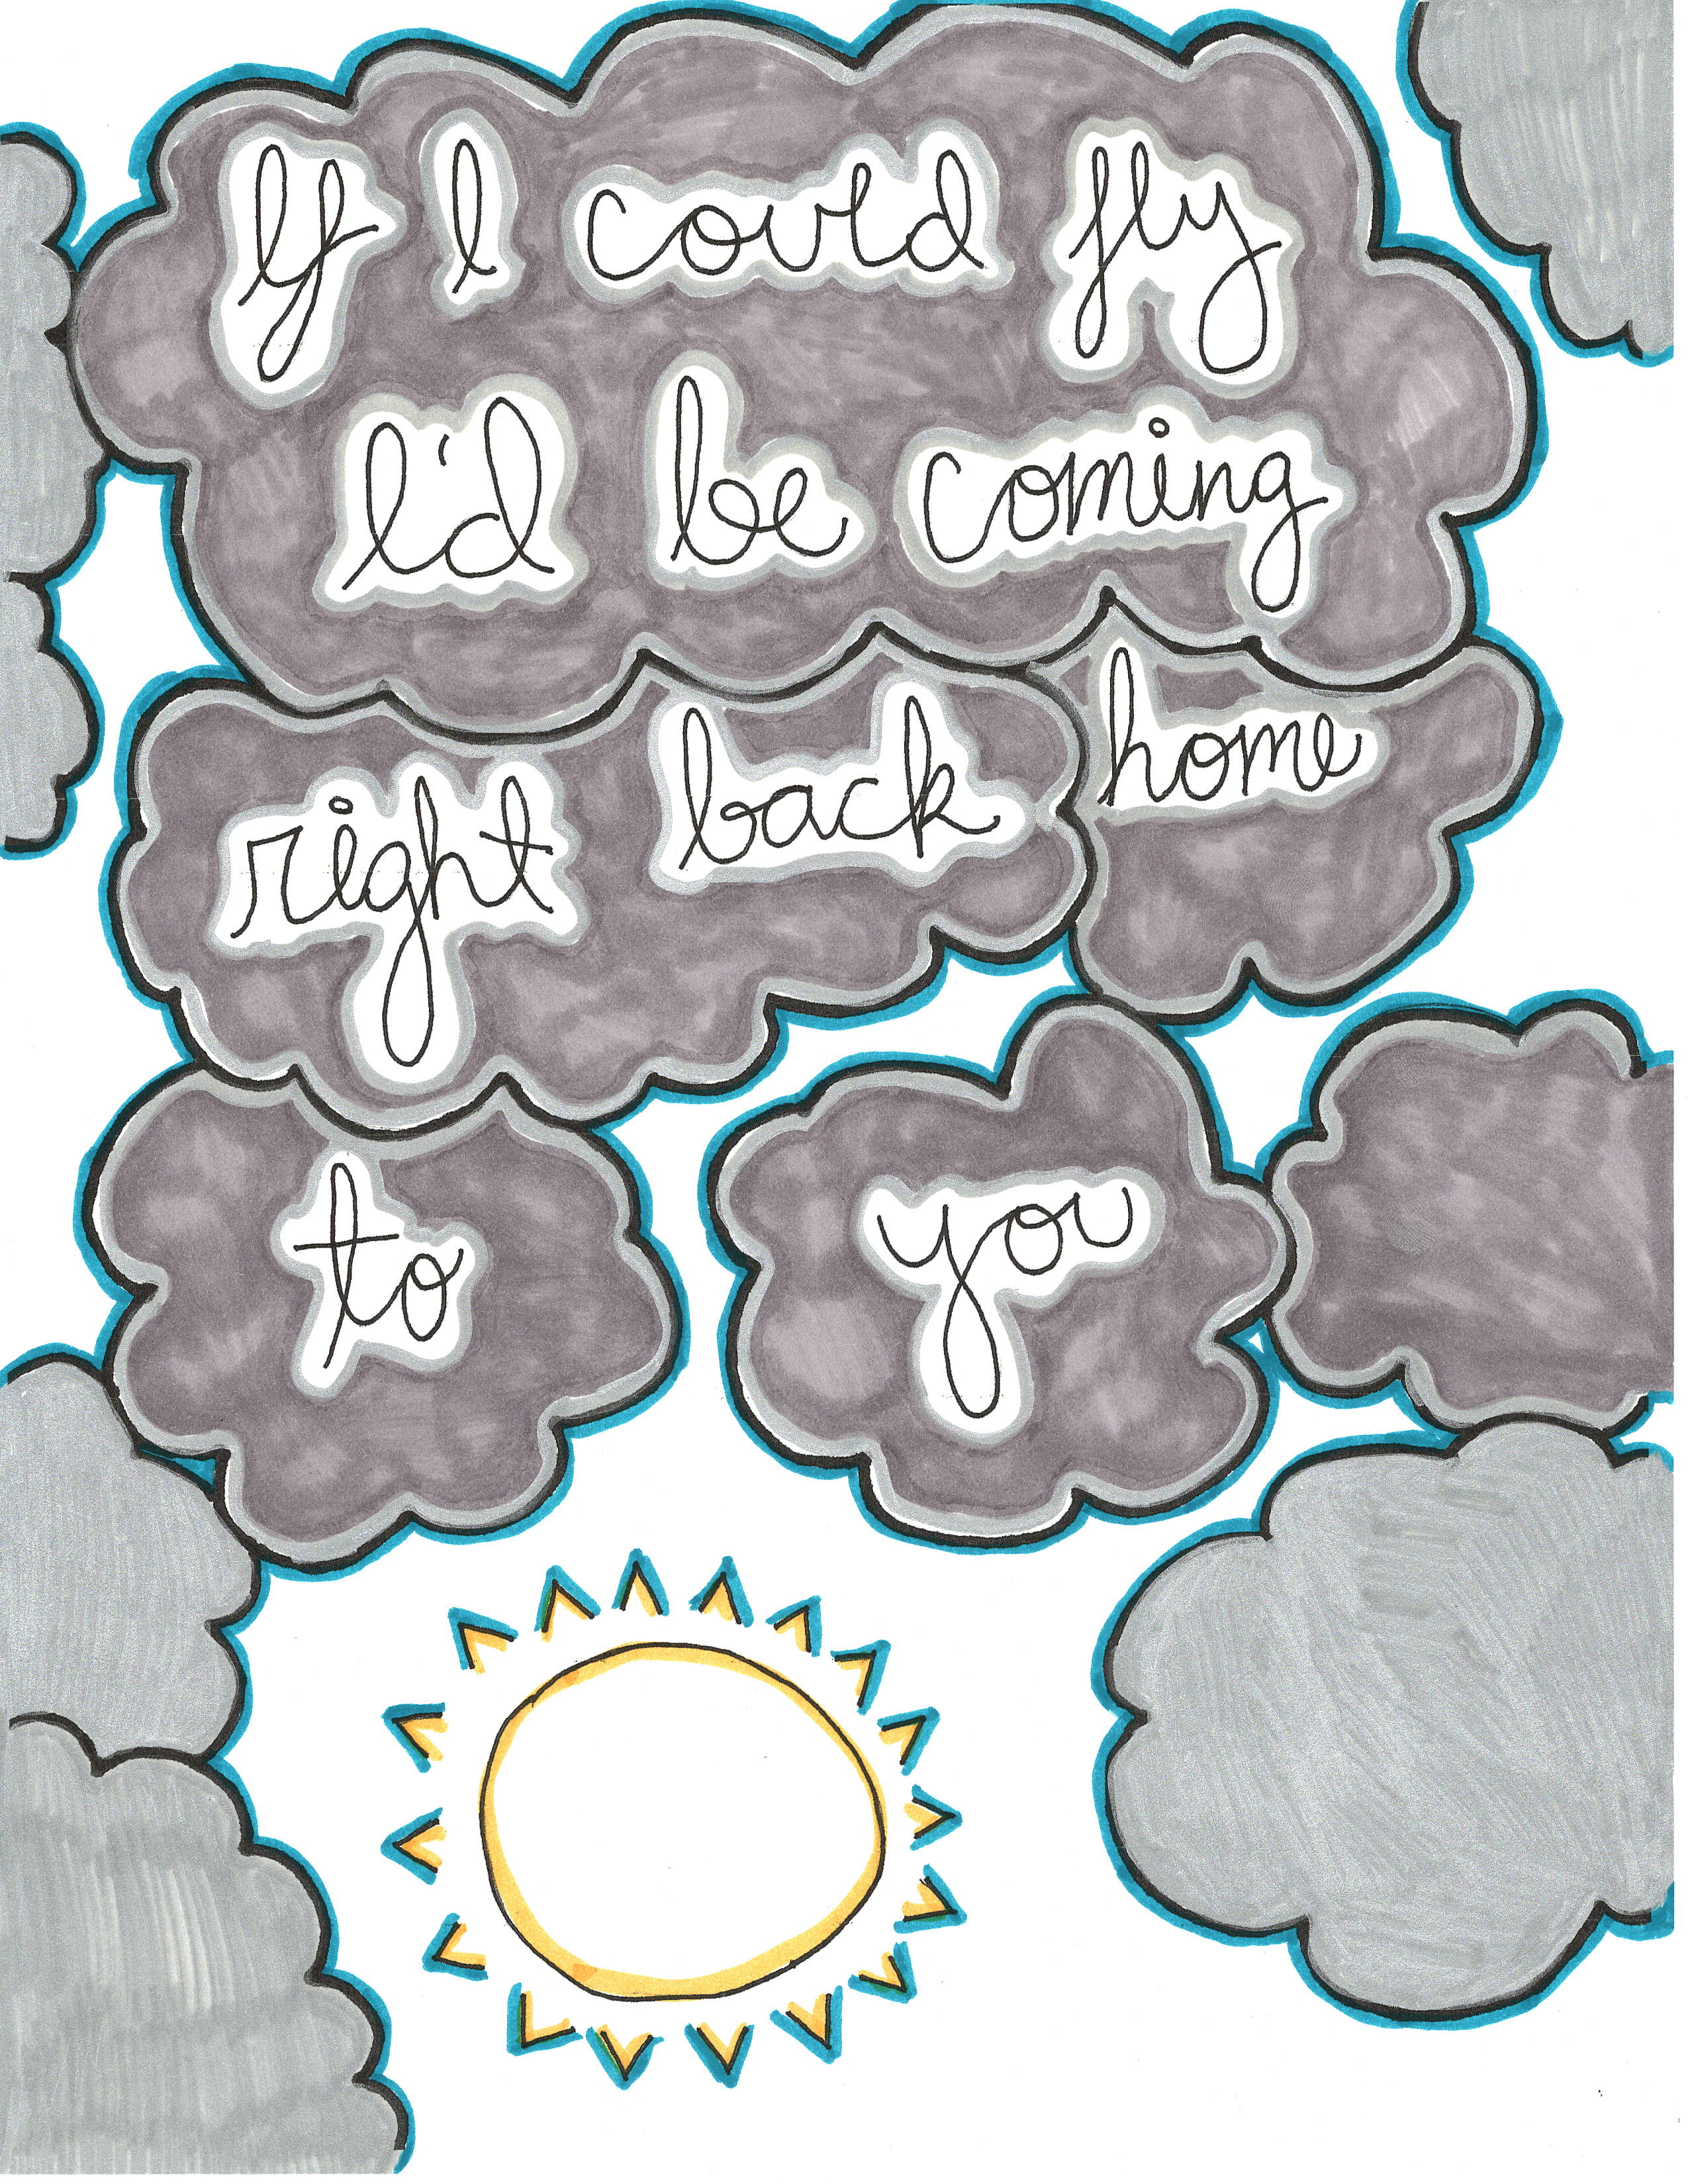 If I could fly
I'd be coming
right back home
to you